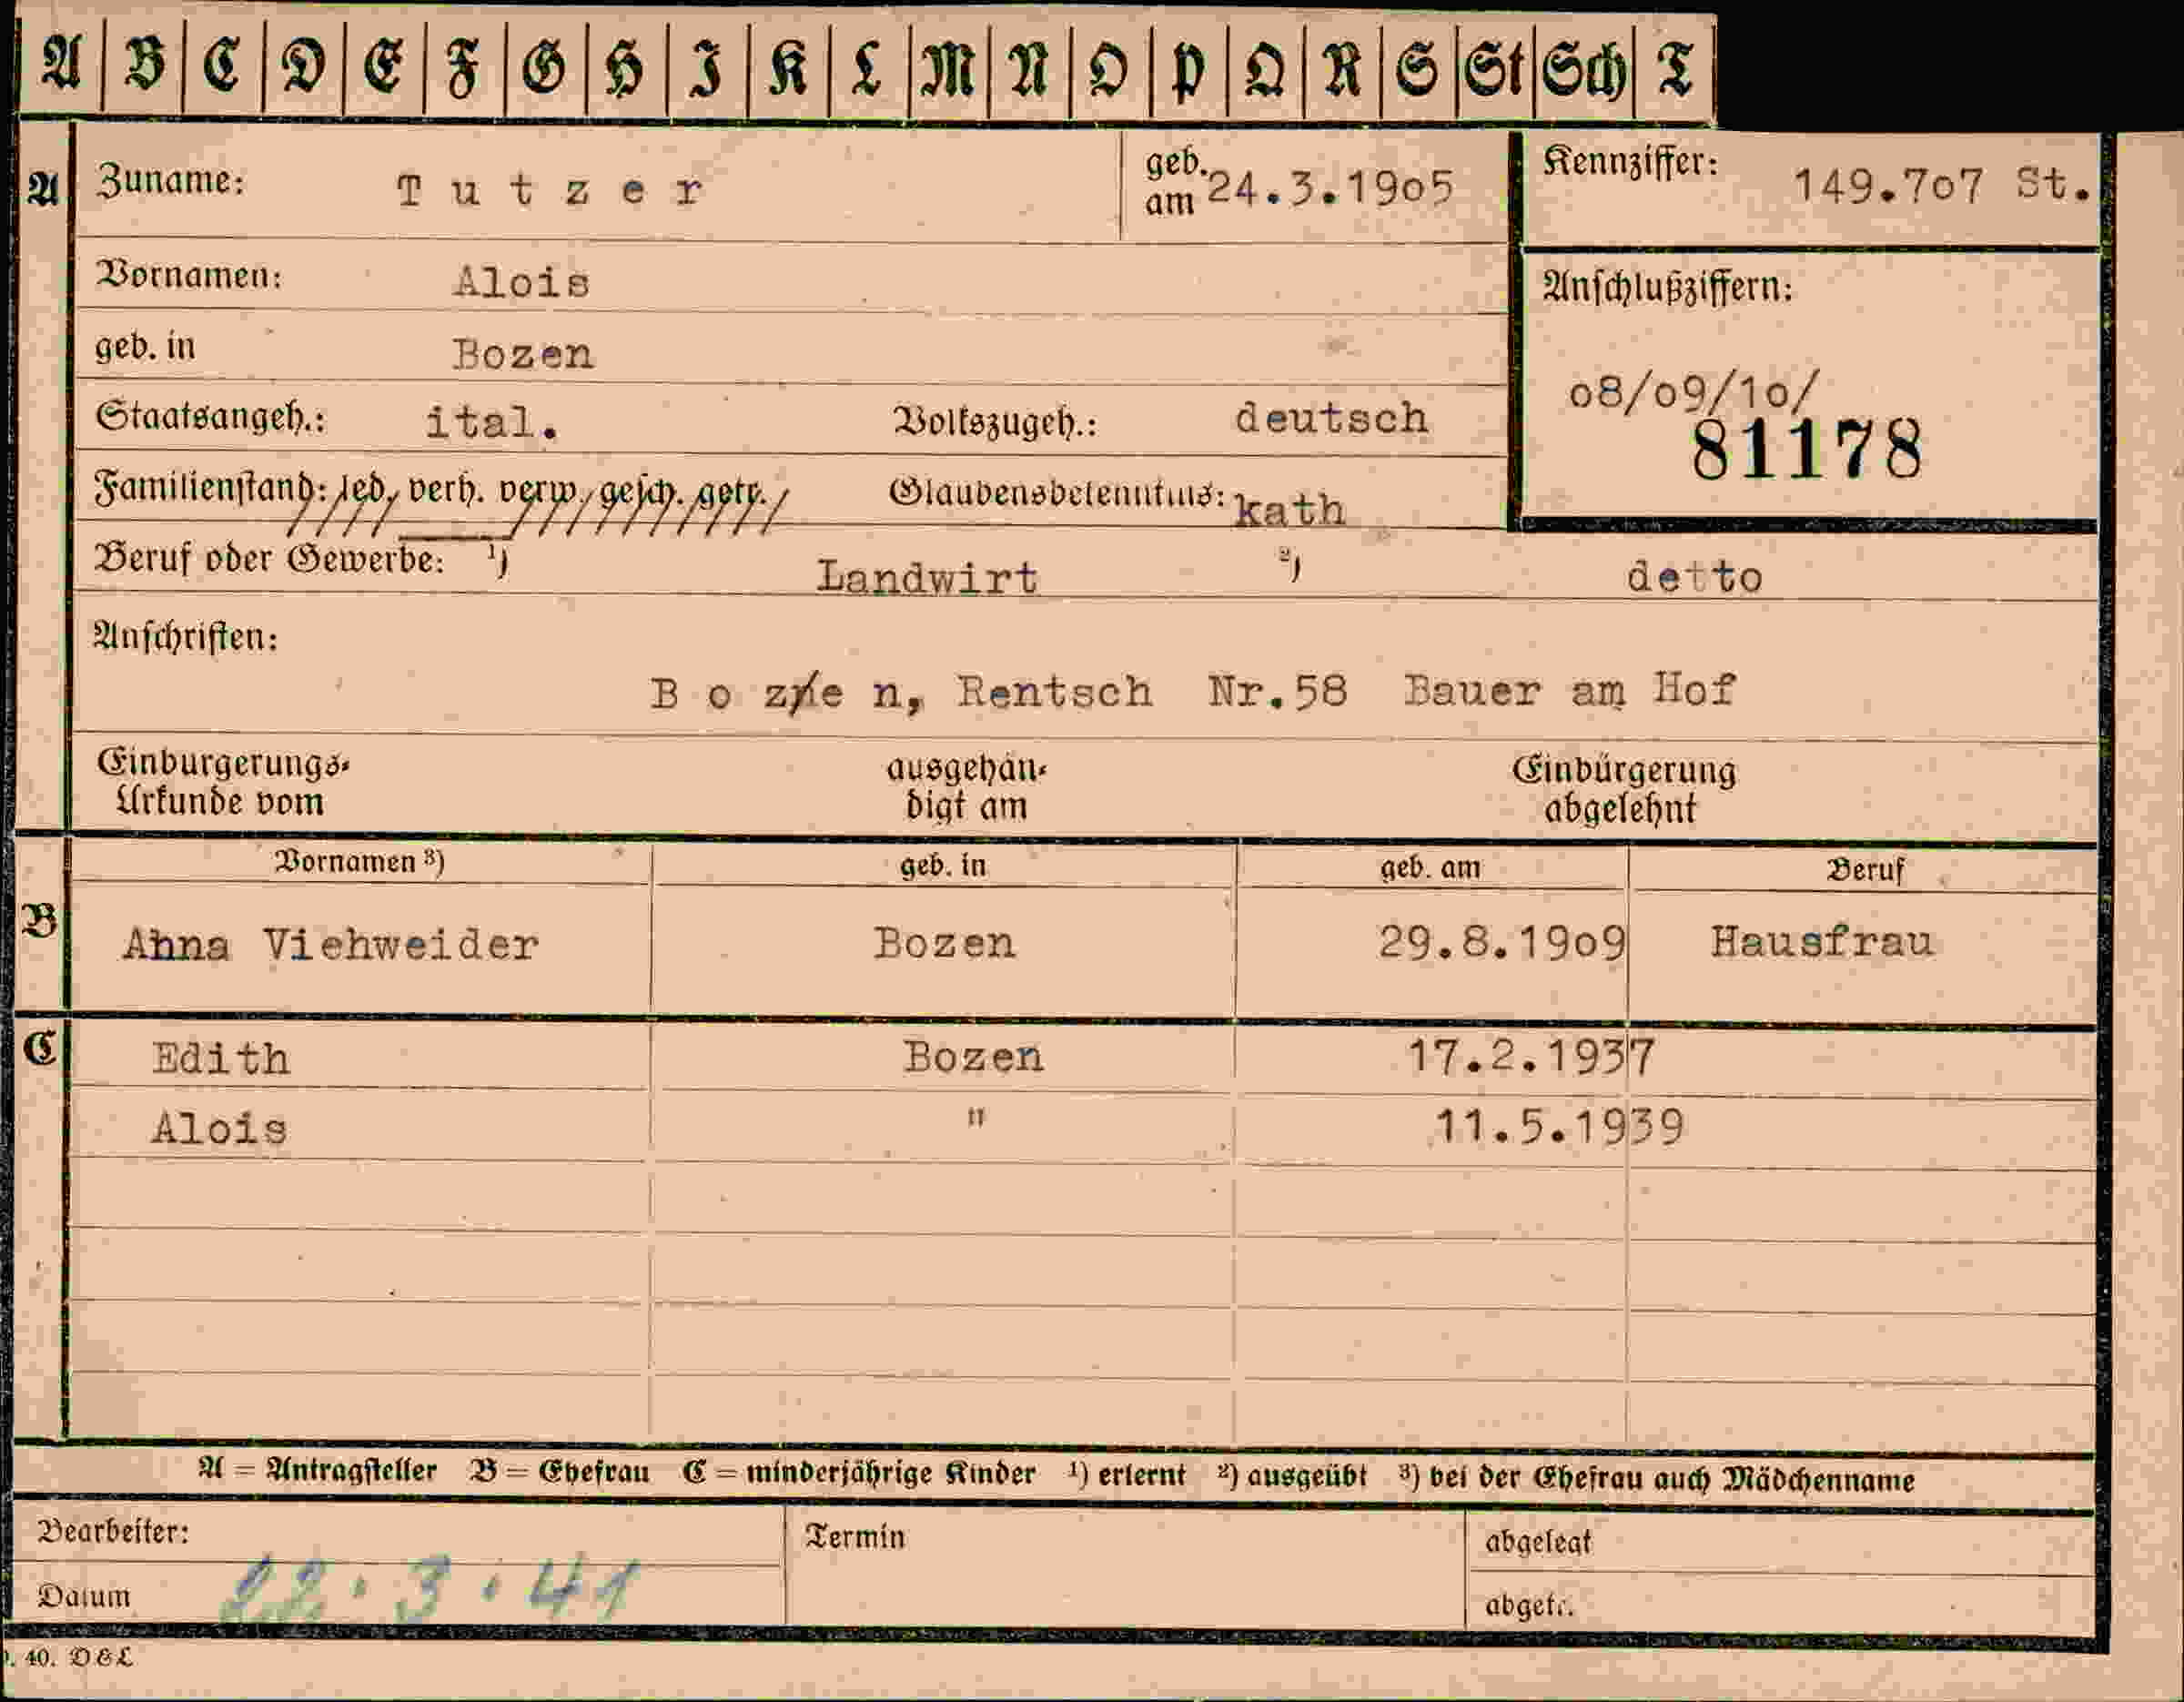 A B C D E F G H I K L M N O P Q R S St Sch T
A Zuname: Tutzer geb. am 24.3.19o5 Kennziffer: 149.7o7 St.
Vornamen: Alois Anschlußziffern:
geb. in Bozen
o8/o9/1o/
Staatsangeh.: ital. Volkszugeh.: deutsch
81178
Familienstand: led. verh. verw. gesch. getr. Glaubensbekenntnis: kath
Beruf oder Gewerbe: ¹) Landwirt ²) detto
Anschriften:
B o z e n, Rentsch Nr.58 Bauer am Hof
Einbürgerungs- ausgehän- Einbürgerung
Urkunde vom digt am abgelehnt
Vornamen ³) geb. in geb. am Beruf
B Anna Viehweider Bozen 29.8.19o9 Hausfrau
C Edith Bozen 17.2.1937
Alois " 11.5.1939
A = Antragsteller B = Ehefrau C = minderjährige Kinder ¹) erlernt ²) ausgeübt ³) bei der Ehefrau auch Mädchenname
Bearbeiter: Termin abgelegt
Datum 22.3.41 abgetr.
40. D&L